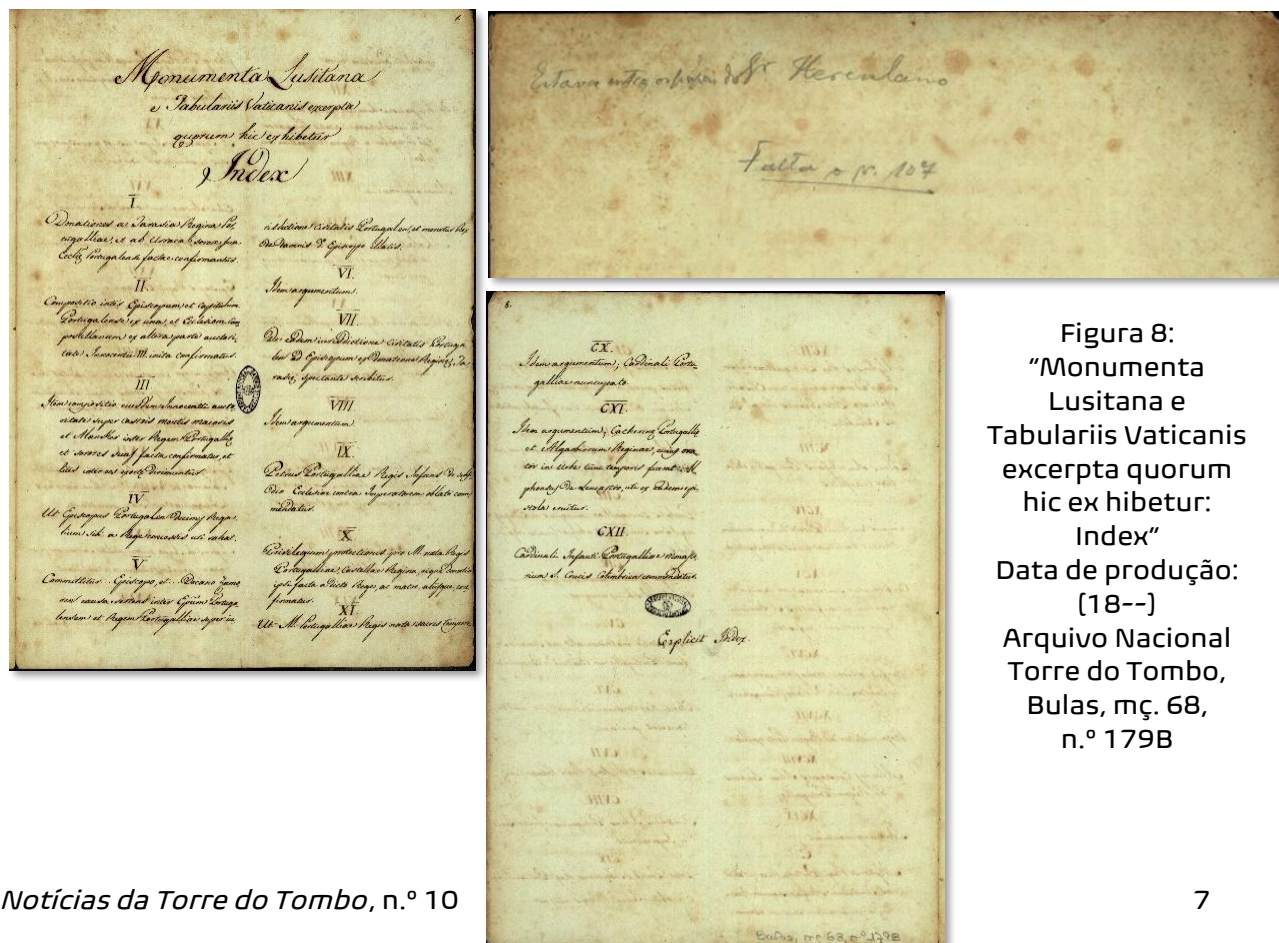 1.
Monumenta Lusitana
e Tabulariis Vaticanis excerpta
quorum hic exhibetur
Index
I
Donationes a Tarasia Regina Por,
tugalliae, et ab Urraca sorore sua
Ecclię Portugalensi factae confirmantur.
II.
Compositio inter Episcopum et Capitulum
Portugalense ex una, et Ecclesiam Com
postellanam ex altera parte auctori,
tate Innocentii III. inita confirmatur.
III
Item compositio eiusdem Innocentii aucto
ritate super castris montis maioris
et Alanker inter Regem Portugallię
et sorores suas facta confirmatur, et
IV
Ut Episcopus Portugalen Decimis Rega,
lium sibi a Rege concessis uti valeat.
V
Committitur .. Episcopo, et .. Decano Zamo
ren causa vertens inter Epum Portuga
lensem et Regem Portugalliae super iu
risdictione Civitatis Portugalen, et monetis
De Damnis D. Episcopo illatis.
VI.
Idem argumentum.
VII.
De eadem iurisdictione Civitatis Portuga
len ad Episcopum ex Donatione Reginę Ta
rasię, spectante scribitur.
VIII
Idem argumentum.
IX.
Petrus Portugalliae Regis Infans de
Ecclesiae contra Imperatorem oblato com
mendatur.
X
Privilegium protectionis pro M. nata Regis
Portugalliae, Castellae Regina,
ipsi facta a dicto Rege, ac matre
firmatur.
XI.
Ut M. Portugalliae Regis nata
Estava entre os papeis do Sr Herculano
Falta o n. 107
8.
CX.
Idem argumentum, Cardinali Portu,
galliae nuncupato.
CXI.
Idem argumentum, Catherinę Portugallię
et Algarbiorum Reginae, cuius ora
tor in Urbe tunc temporis fuerat Al
phonsus De Lencastro, uti ex eadem epi
stola eruitur.
CXII.
Cardinali Infanti Portugalliae monaste
rium S. Crucis Colimbrien commendatur.
Explicit Index.
Bulas, mç 68, nº 179B
Figura 8:
“Monumenta
Lusitana e
Tabulariis Vaticanis
excerpta quorum
hic ex hibetur:
Index”
Data de produção:
(18--)
Arquivo Nacional
Torre do Tombo,
Bulas, mç. 68,
n.º 179B
Notícias da Torre do Tombo, n.º 10
7